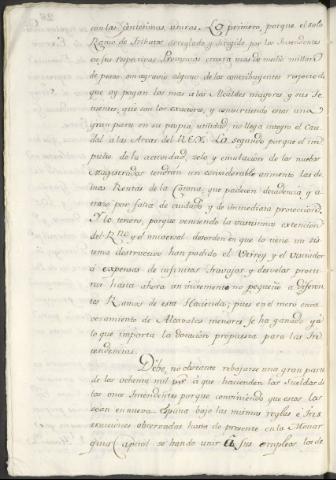 con las Centésimas usuras. Lo primero, porque el solo
Ramo de Tributos arreglado y dirigido por los Intendentes
en sus respectivas Provincias crecerá mas de medio millon
de pesos sin agravio alguno de los contribuyentes respecto à
que oy pagan los mas a los Alcaldes mayores y sus Te-
nientes, que son los exactores, y convirtiendo estos una
gran parte en su propia utilidad, no llega integro el Cau-
dal a las Arcas del REY. Lo segundo porque el im-
pulso de la actividad, zelo y emulacion de los nuebos
Magistrados tendrán un considerable aumento las de-
mas Rentas de la Corona, que padecen decadencia y a-
traso por falta de cuidado y de inmediata proteccion.
Y lo tercero, porque venciendo la vastissima extencion
del Rno. y el universal desorden en que lo tiene un sis-
tema destructivo han podido el Virrey y Visitador
à expensas de infinitos trabajos y desvelos procu-
rar hasta ahora un incremento no pequeño a diferen-
tes Ramos de esta Hacienda; pues en el mero
de Alcavalas menores se ha ganado yà
lo que importa la dotacion propuesta para las In-
tendencias.
Débe, no obstante rebajarse una gran parte
de los ochenta mil ps. à que hacienden los sueldos de
los once Intendentes porque conviniendo que estos les
sean en nueva España bajo las mismas reglas è Ins-
trucciones observadas hasta de presente en la Monar-
quia Capital se han de unir à sus empleos, los de